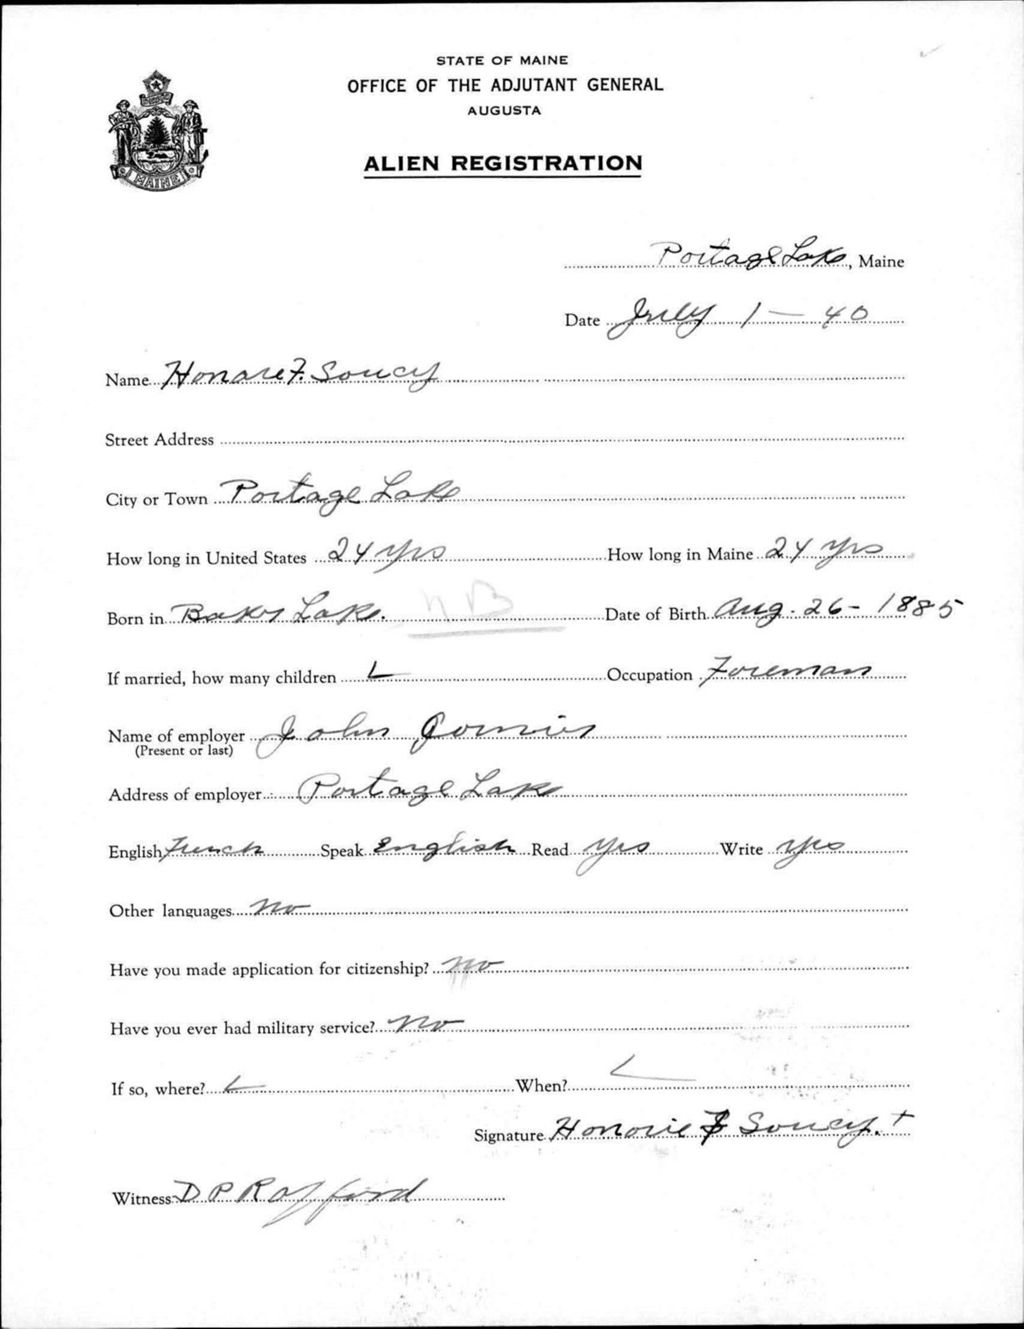 STATE OF MAINE
OFFICE OF THE ADJUTANT GENERAL
AUGUSTA
MAINE
ALIEN REGISTRATION
Portage Lake, Maine
Date July 1 - 40
Name Honore F. Soucy
Street Address
City or Town Portage Lake
How long in United States 24 yrs How long in Maine 24 yrs
Born in Lake. NB Date of Birth Aug. 26 - 1885
If married, how many children Occupation Foreman
Name of employer John
(Present or last)
Address of employer Portage Lake
English French Speak English Read Yes Write Yes
Other languages No
Have you made application for citizenship? No
Have you ever had military service? No
If so, where? When?
Signature Honorie F Soucy. +
Witness D P Rafford